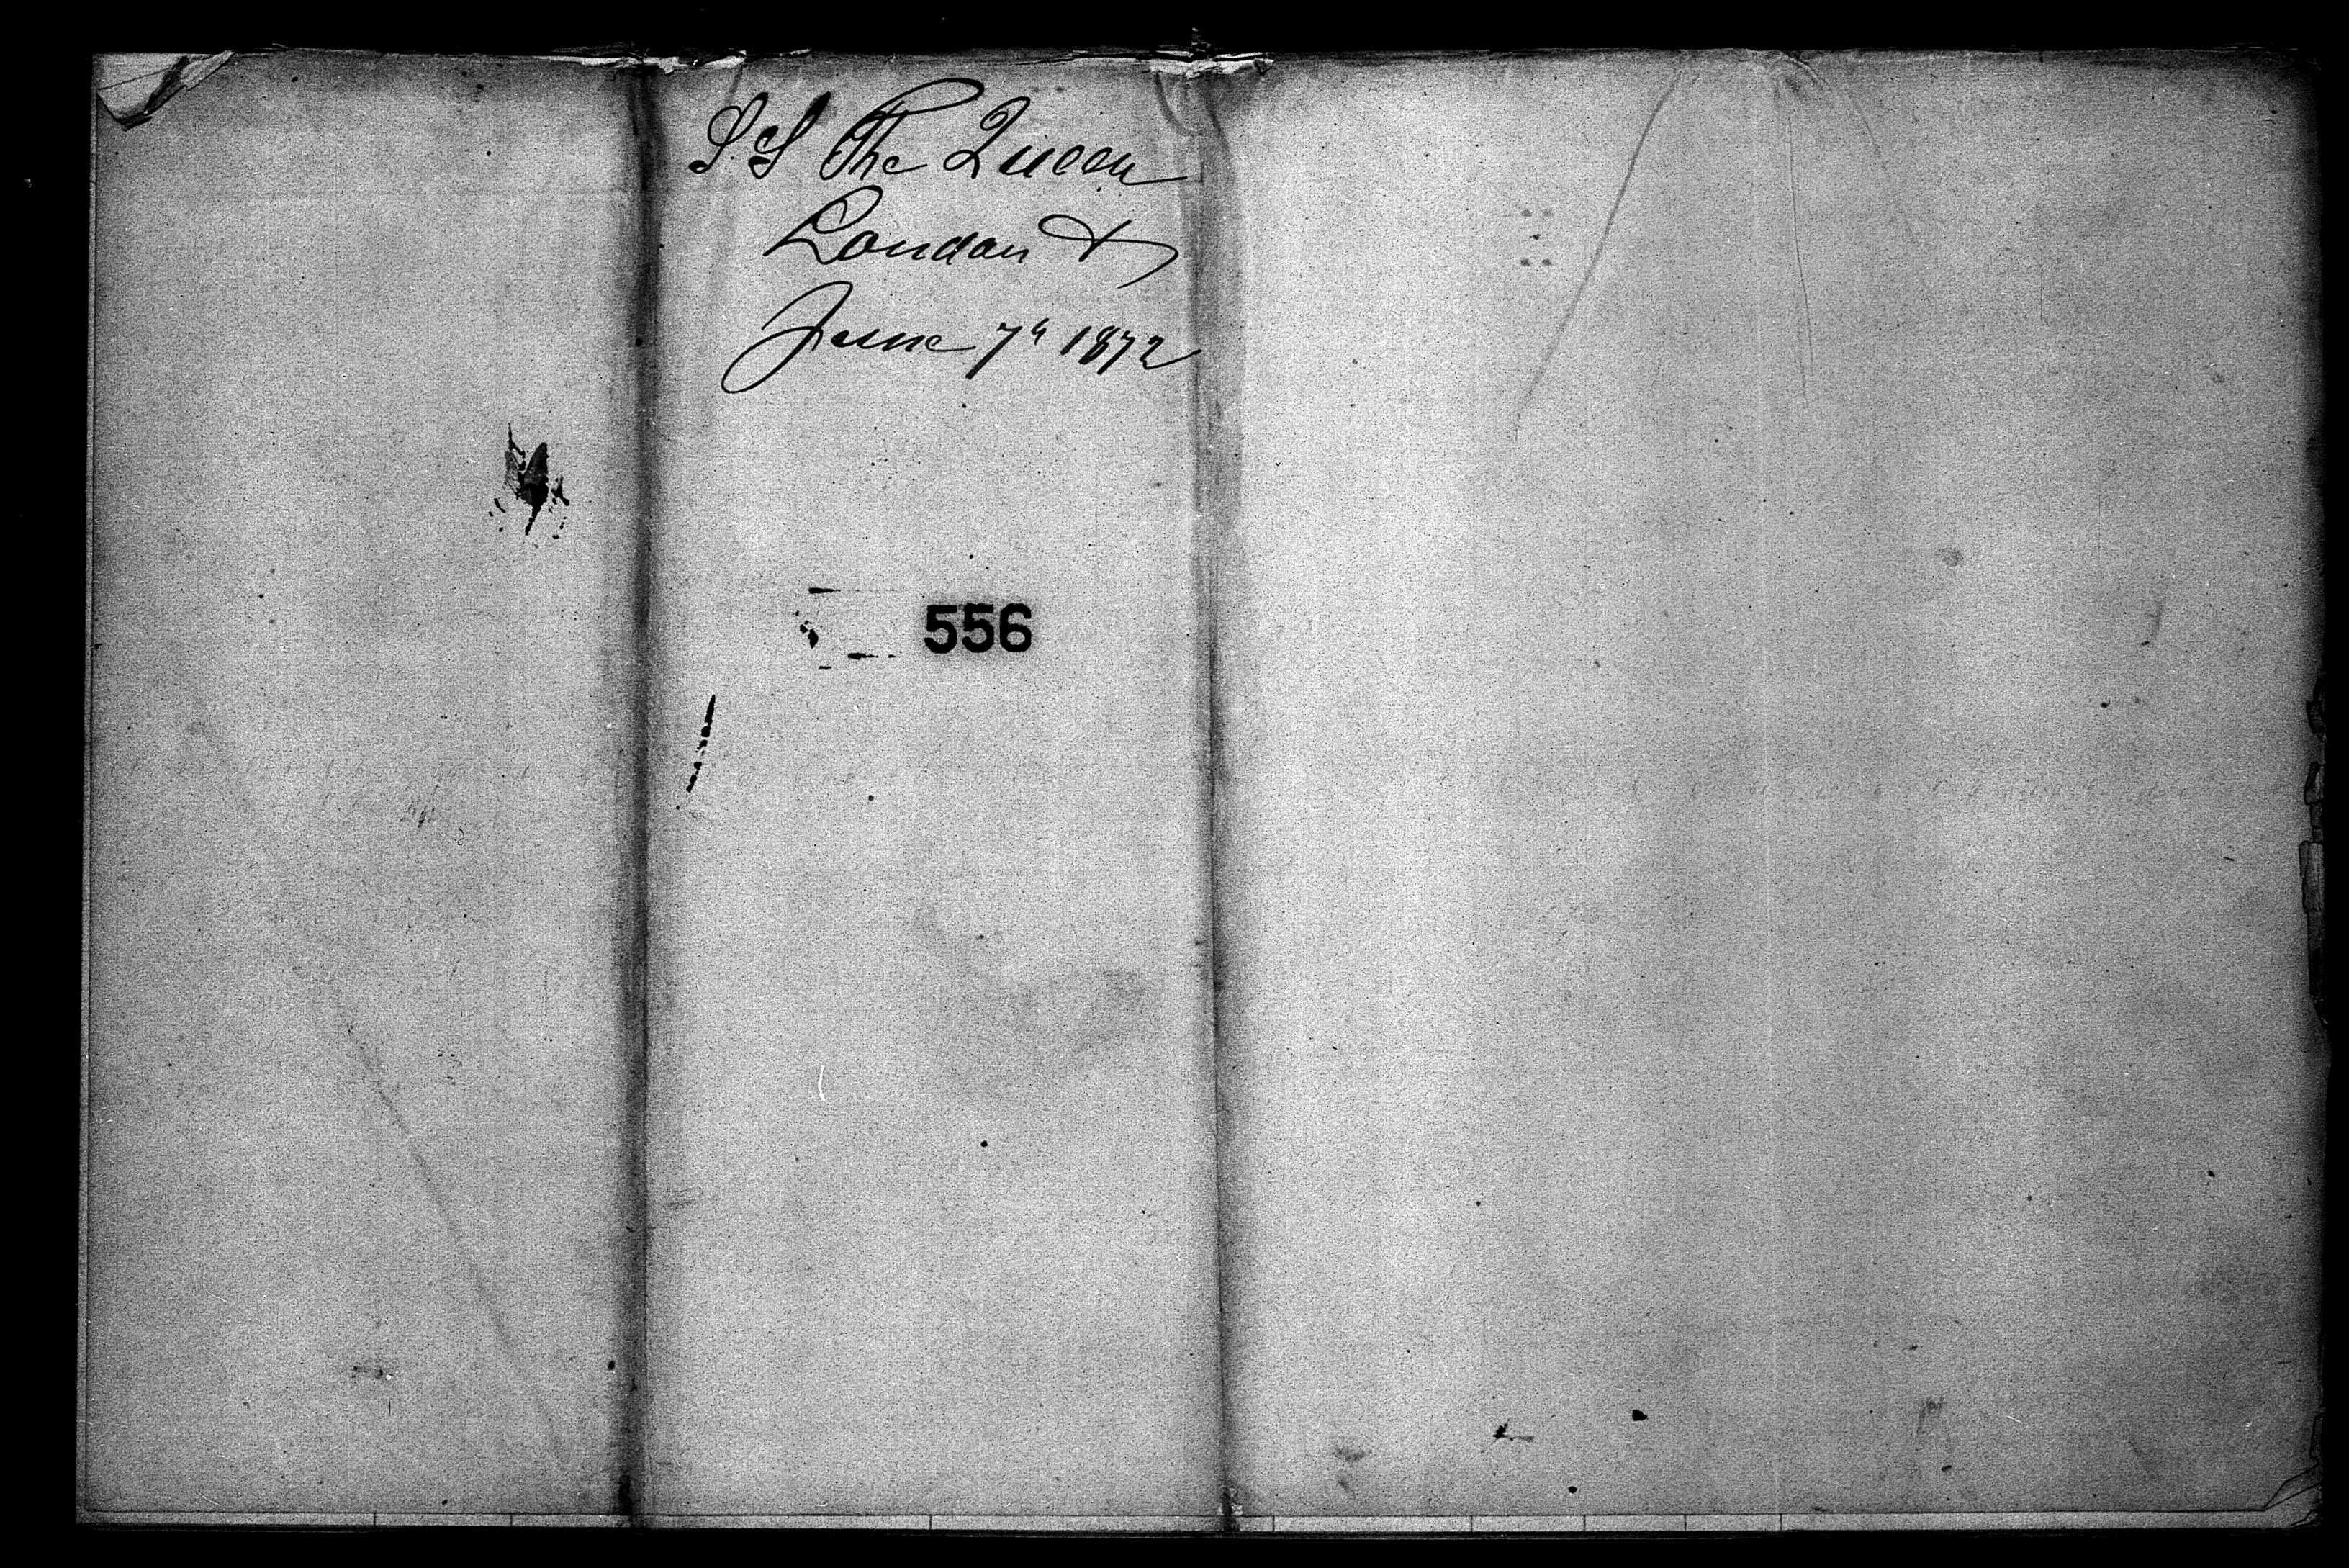 S.S The Queen
London &
June 7th 1872
556